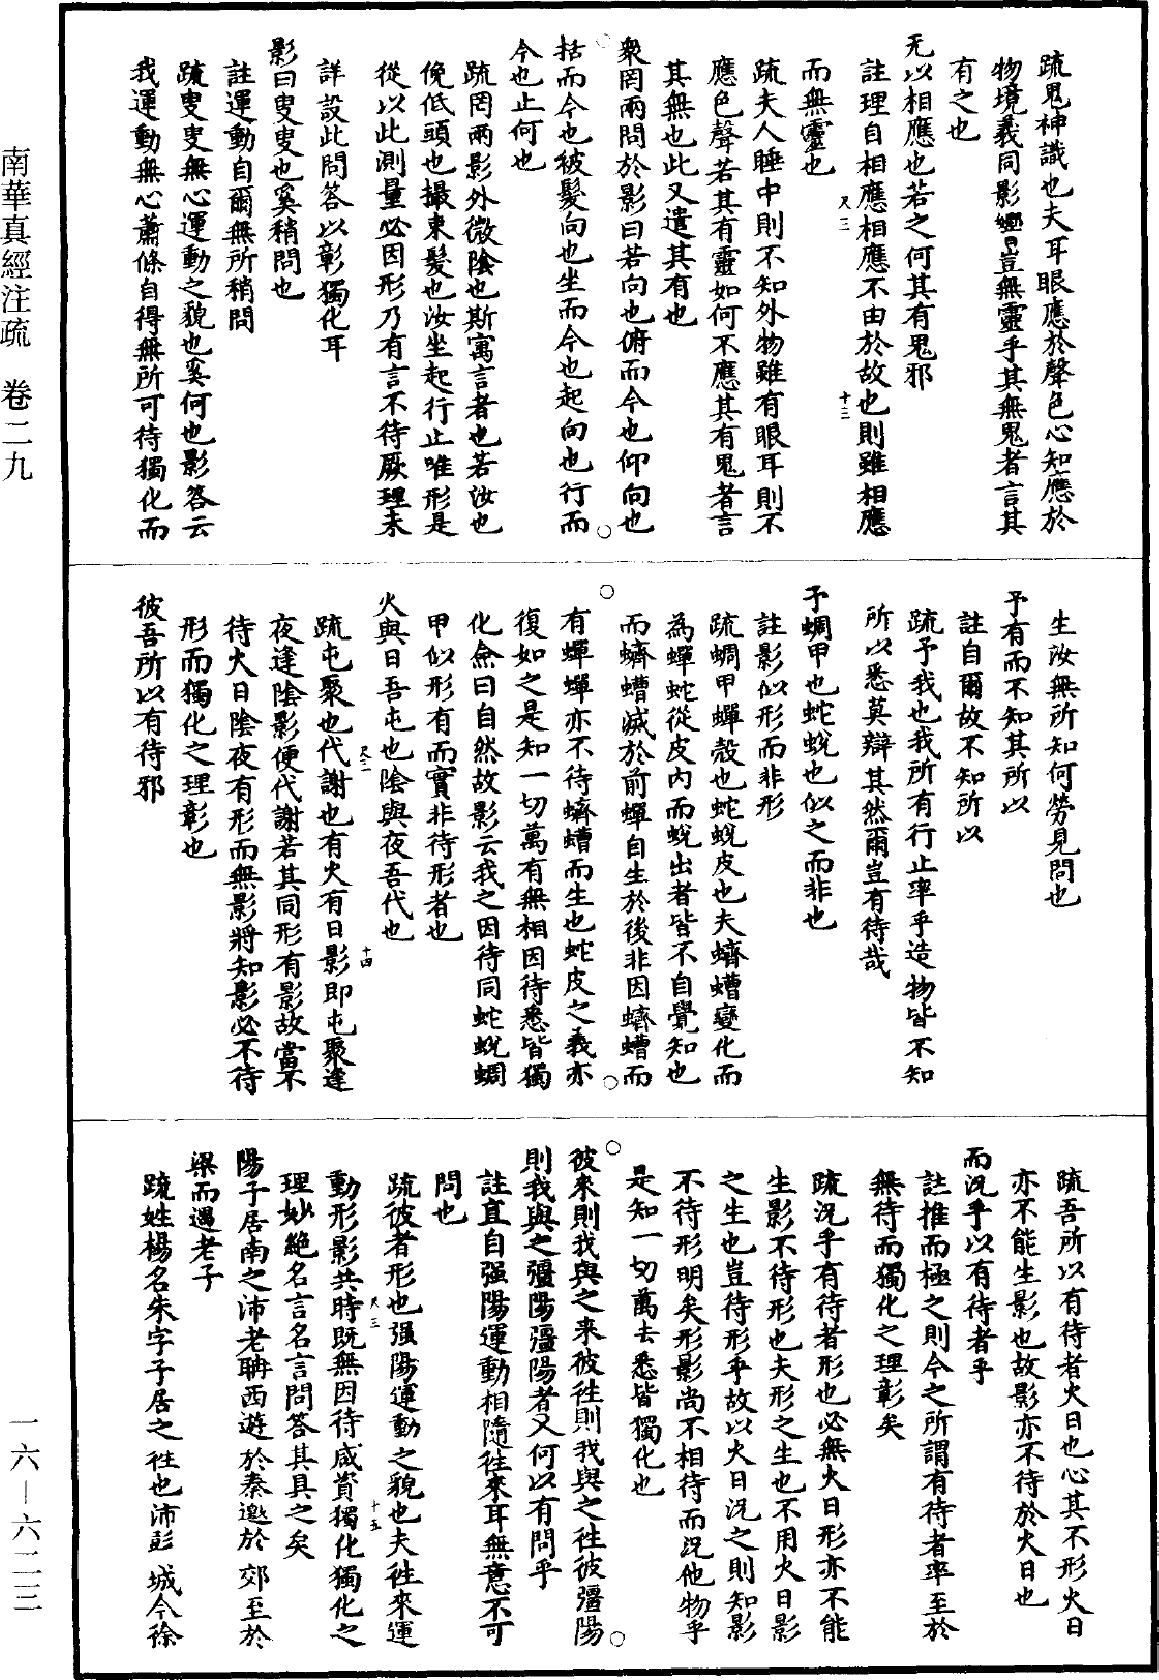 南華真經注疏　卷二九
疏鬼神識也夫耳眼應於聲色心知應於
物境義同影響豈無靈乎其無鬼者言其
有之也
无以相應也若之何其有鬼邪
註理自相應相應不由於故也則雖相應
而無靈也
尺三
十三
疏夫人睡中則不知外物雖有眼耳則不
應色聲若其有靈如何不應其有鬼者言
其無也此又遣其有也
衆罔兩問於影曰若向也俯而今也仰向也
括而今也被髮向也坐而今也起向也行而
今也止何也
疏罔兩影外微陰也斯寓言者也若汝也
俛低頭也撮束髮也汝坐起行止唯形是
從以此測量必因形乃有言不待厥理未
詳設此問答以彰獨化耳
影曰叟叟也奚稍問也
註運動自爾無所稍問
疏叟叟無心運動之貌也奚何也影答云
我運動無心蕭條自得無所可待獨化而
生汝無所知何勞見問也
予有而不知其所以
註自爾故不知所以
疏予我也我所有行止率乎造物皆不知
所以悉莫辯其然爾豈有待哉
予蜩甲也蛇蛻也似之而非也
註影似形而非形
疏蜩甲蟬殼也蛇蛻皮也夫蠐螬變化而
為蟬蛇從皮內而蛻出者皆不自覺知也
而蠐螬滅於前蟬自生於後非因蠐螬而
有蟬蟬亦不待蠐螬而生也蛇皮之義亦
復如之是知一切萬有無相因待悉皆獨
化僉曰自然故影云我之因待同蛇蛻蜩
甲似形有而實非待形者也
火與日吾屯也陰與夜吾代也
尺三
十四
疏屯聚也代謝也有火有日影即屯聚逢
夜逢陰影便代謝若其同形有影故當不
待火日陰夜有形而無影將知影必不待
形而獨化之理彰也
彼吾所以有待邪
疏吾所以有待者火日也心其不形火日
亦不能生影也故影亦不待於火日也
而況乎以有待者乎
註推而極之則今之所謂有待者率至於
無待而獨化之理彰矣
疏況乎有待者形也必無火日形亦不能
生影不待形也夫形之生也不用火日影
之生也豈待形乎故以火日況之則知影
不待形明矣形影尚不相待而況他物乎
是知一切萬去悉皆獨化也
彼來則我與之來彼往則我與之往彼彊陽
則我與之彊陽彊陽者又何以有問乎
註直自强陽運動相隨往來耳無意不可
問也
疏彼者形也强陽運動之貌也夫往來運
尺三
十五
動形影共時既無因待咸資獨化獨化之
理妙絶名言名言問答其具之矣
陽子居南之沛老聃西遊於秦邀於郊至於
梁而遇老子
疏姓楊名朱字子居之往也沛彭城今徐
一六—六二三